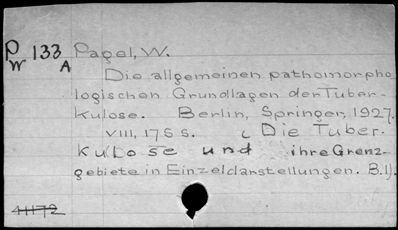 P 133 Pagel, W.
W A
Die allgemeinen pathomorpho
logischen Grundlagen der Tuber-
kulose. Berlin, Springer, 1927.
VIII, 175 s. (Die Tuber.
kulose und ihre Grenz-
gebiete in Einzeldarstellungen. B.1).
41172